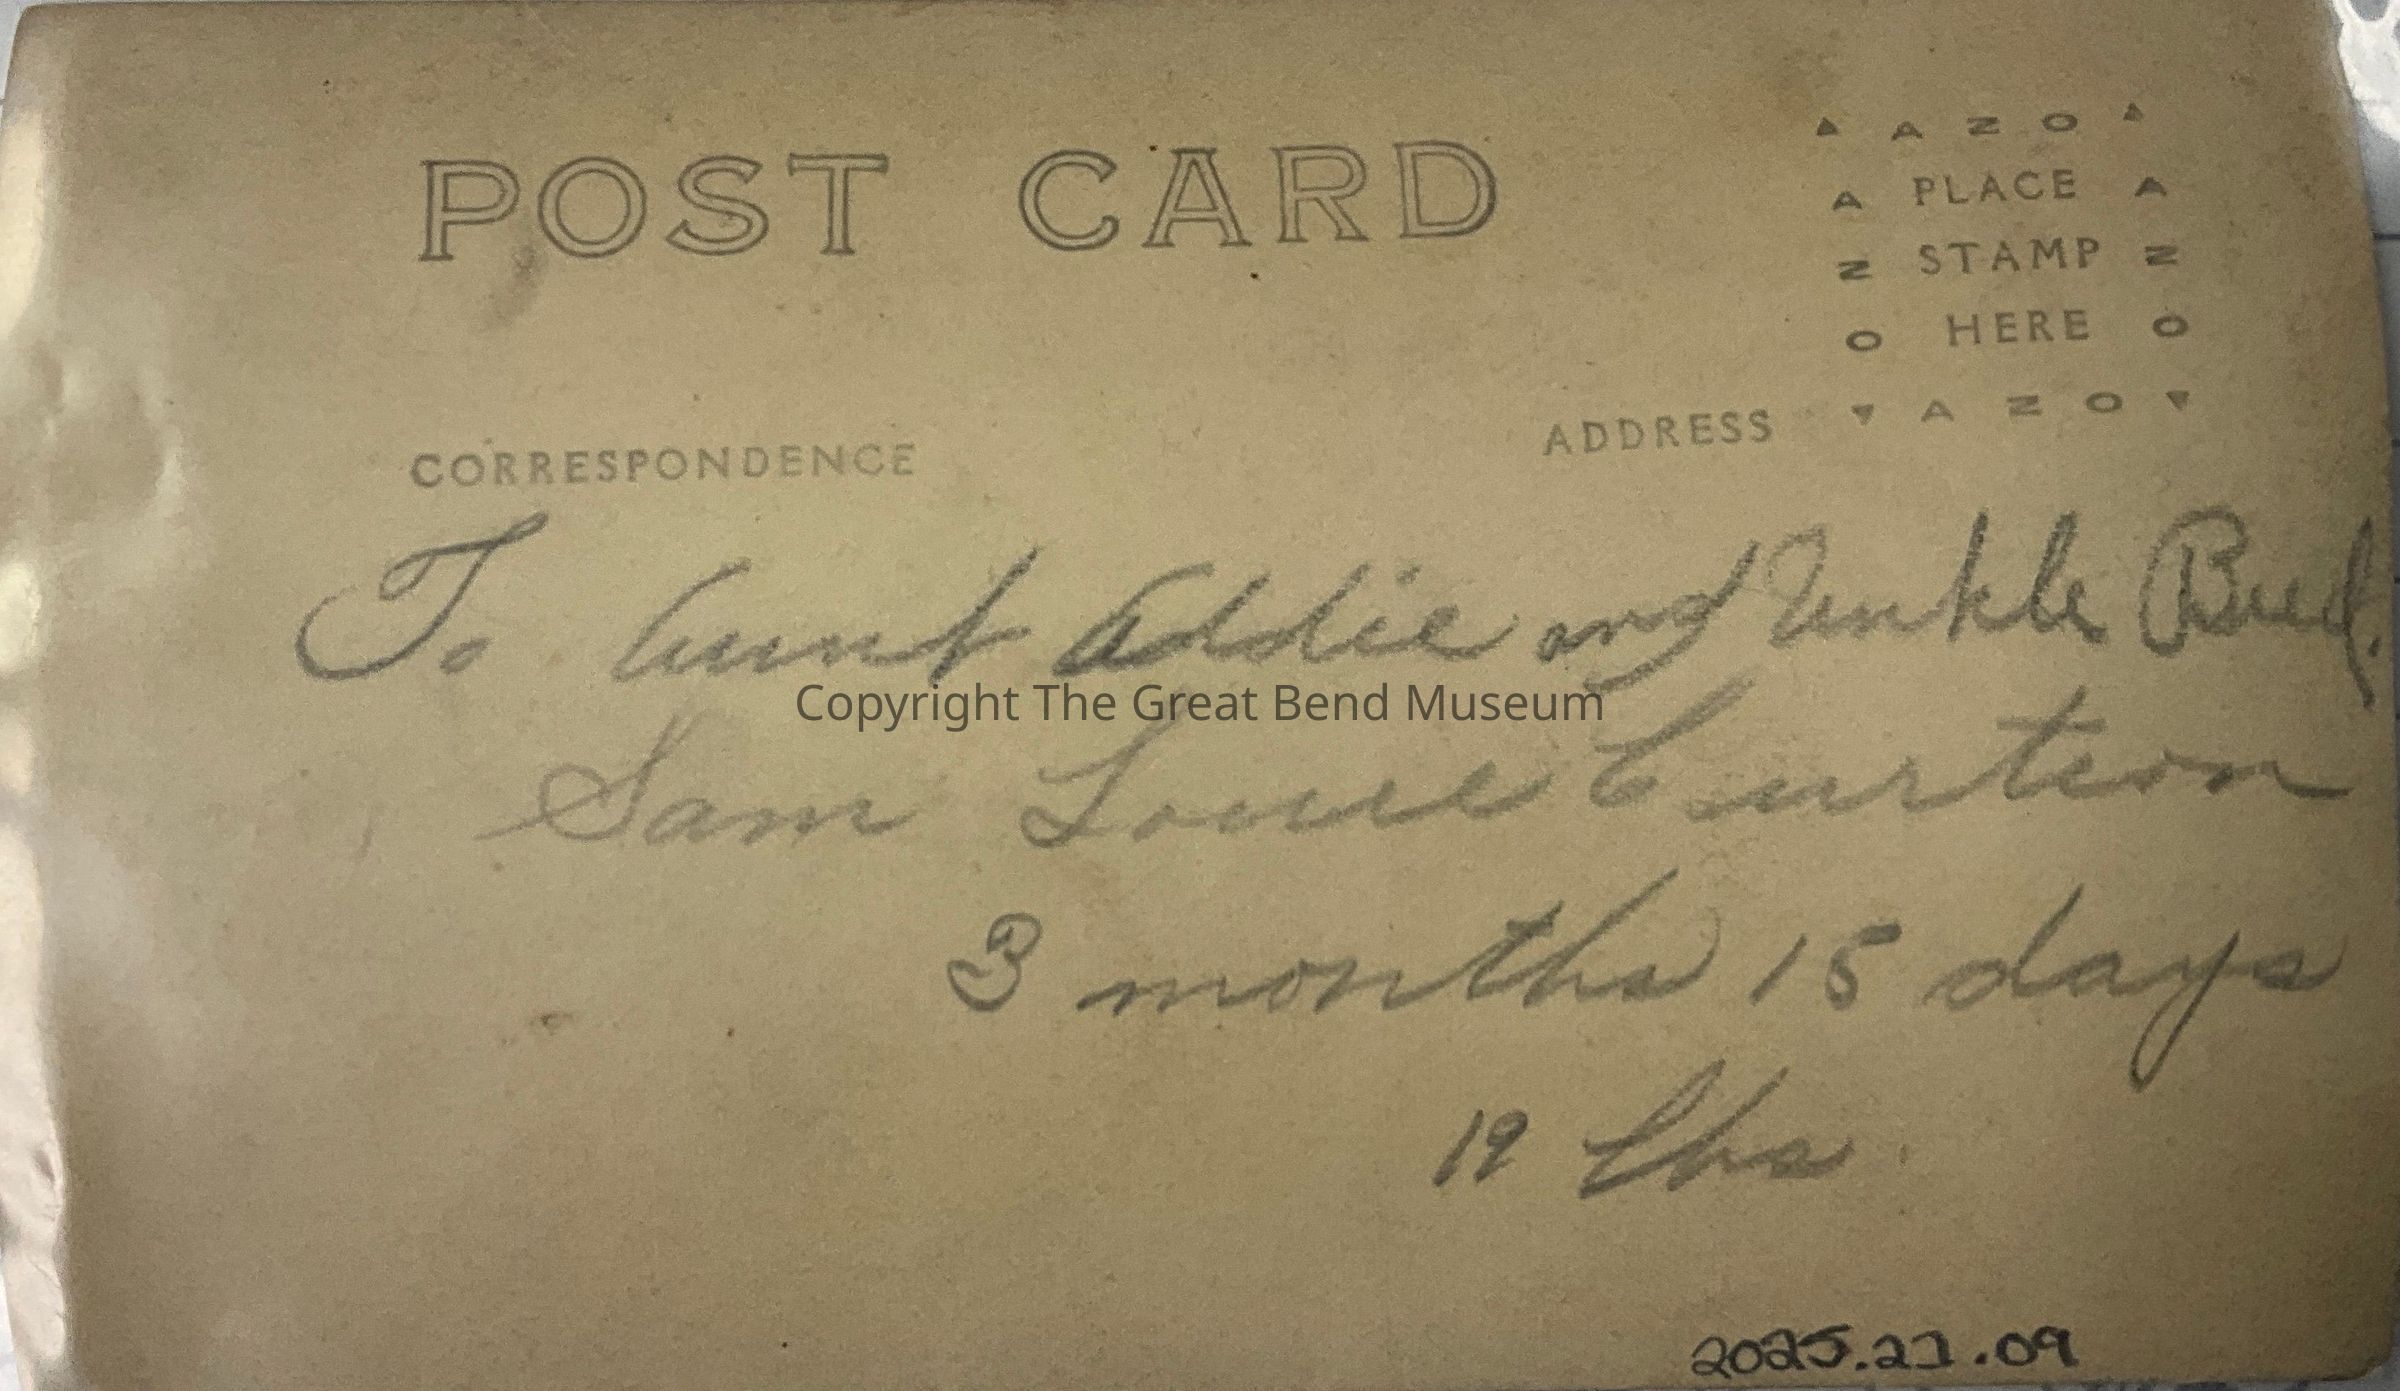 POST CARD
▲ A Z O ▲
A PLACE A
Z STAMP Z
O HERE O
▼ A Z O ▼
CORRESPONDENCE
ADDRESS
To Aunt Addie and Unkle Bud.
Copyright The Great Bend Museum
Sam Louie
3 months 15 days
19 lbs
2025.21.09